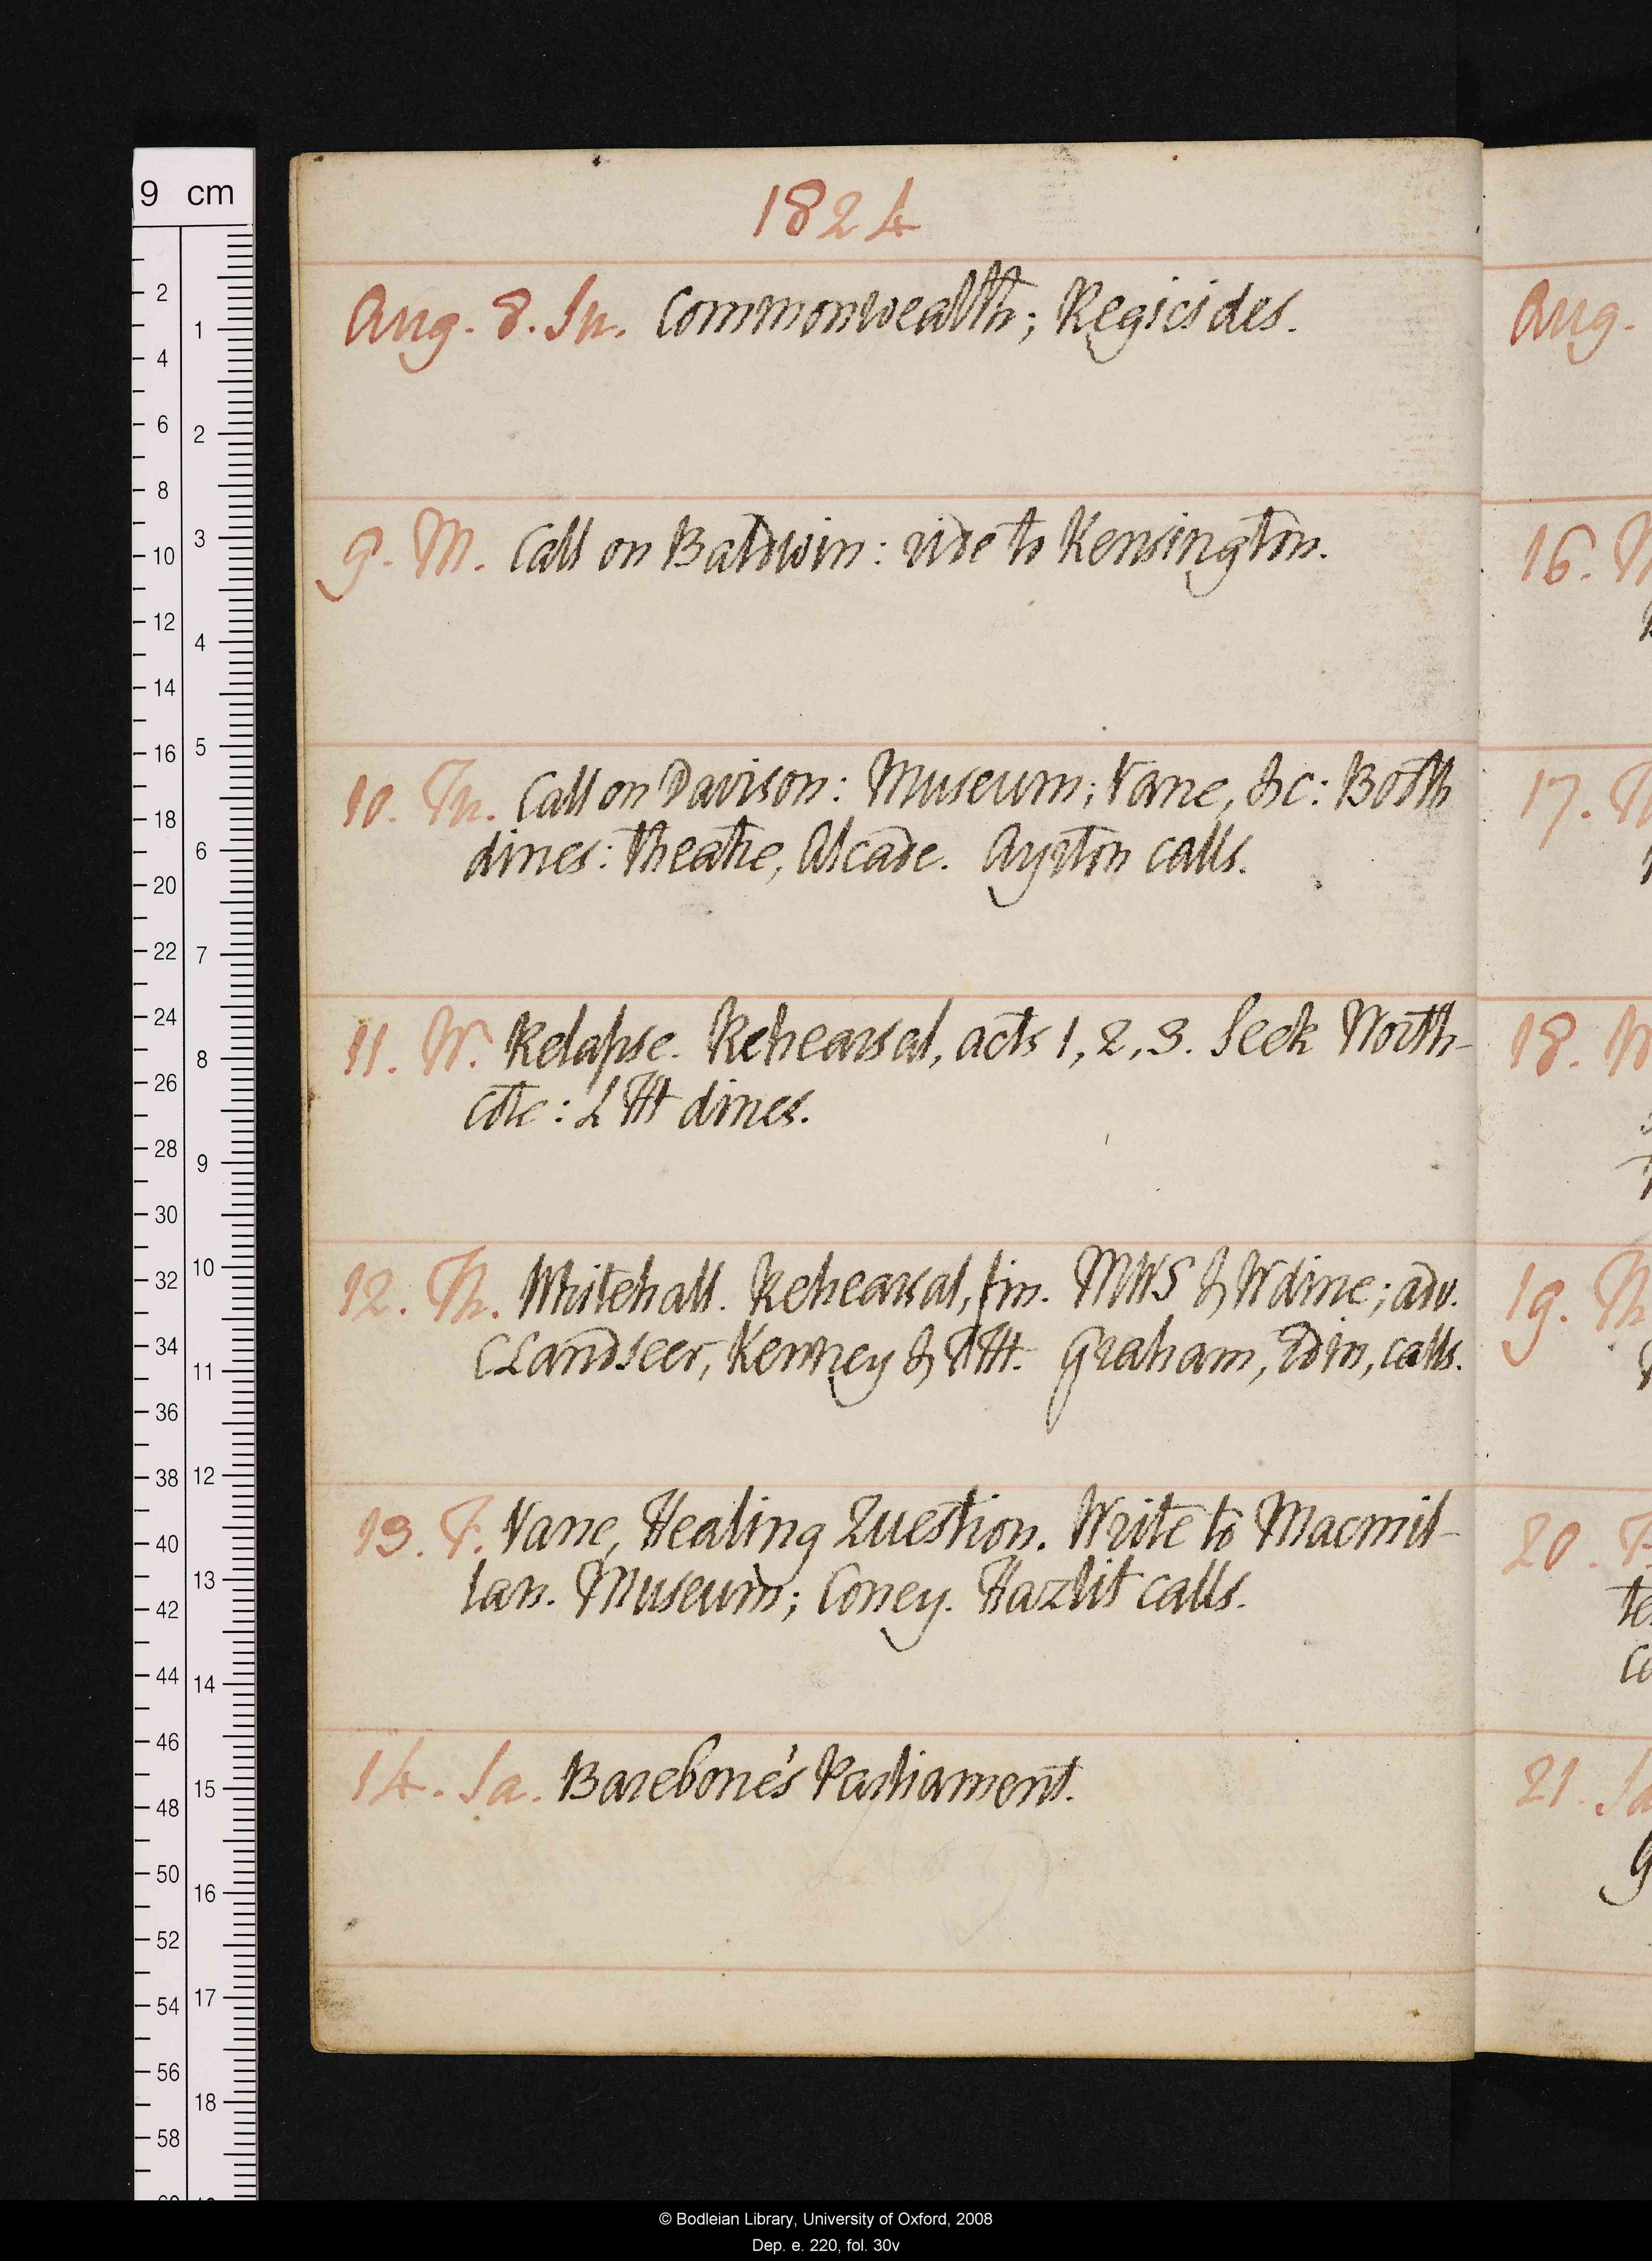 1824
Aug. 8. Su. Commonwealth; Regicides.
9. M. Call on Baldwin: ride to Kensington.
10. Tu. Call on Davison: Museum; Vane, &c: Booth
dines: theatre, Alcade. Ayrton calls.
11. W. Relapse. Rehearsal, acts 1, 2, 3. Seek North-
cote: L Ht dines.
12. Th. Whitehall. Rehearsal, fin. MWS & W dine; adv.
C Landseer, Kenney & Ht. Graham, Edin, calls.
13. F. Vane, Healing Question. Write to Macmil-
lan. Museum; Coney. Hazlit calls.
14. Sa. Barebone's Parliament.
Aug.
16. M
17. T
18. W
19. Th
20. F
te
co
21. Sa
G
9 cm
2
4
6
8
10
12
14
16
18
20
22
24
26
28
30
32
34
36
38
40
42
44
46
48
50
52
54
56
58
1
2
3
4
5
6
7
8
9
10
11
12
13
14
15
16
17
18
© Bodleian Library, University of Oxford, 2008
Dep. e. 220, fol. 30v